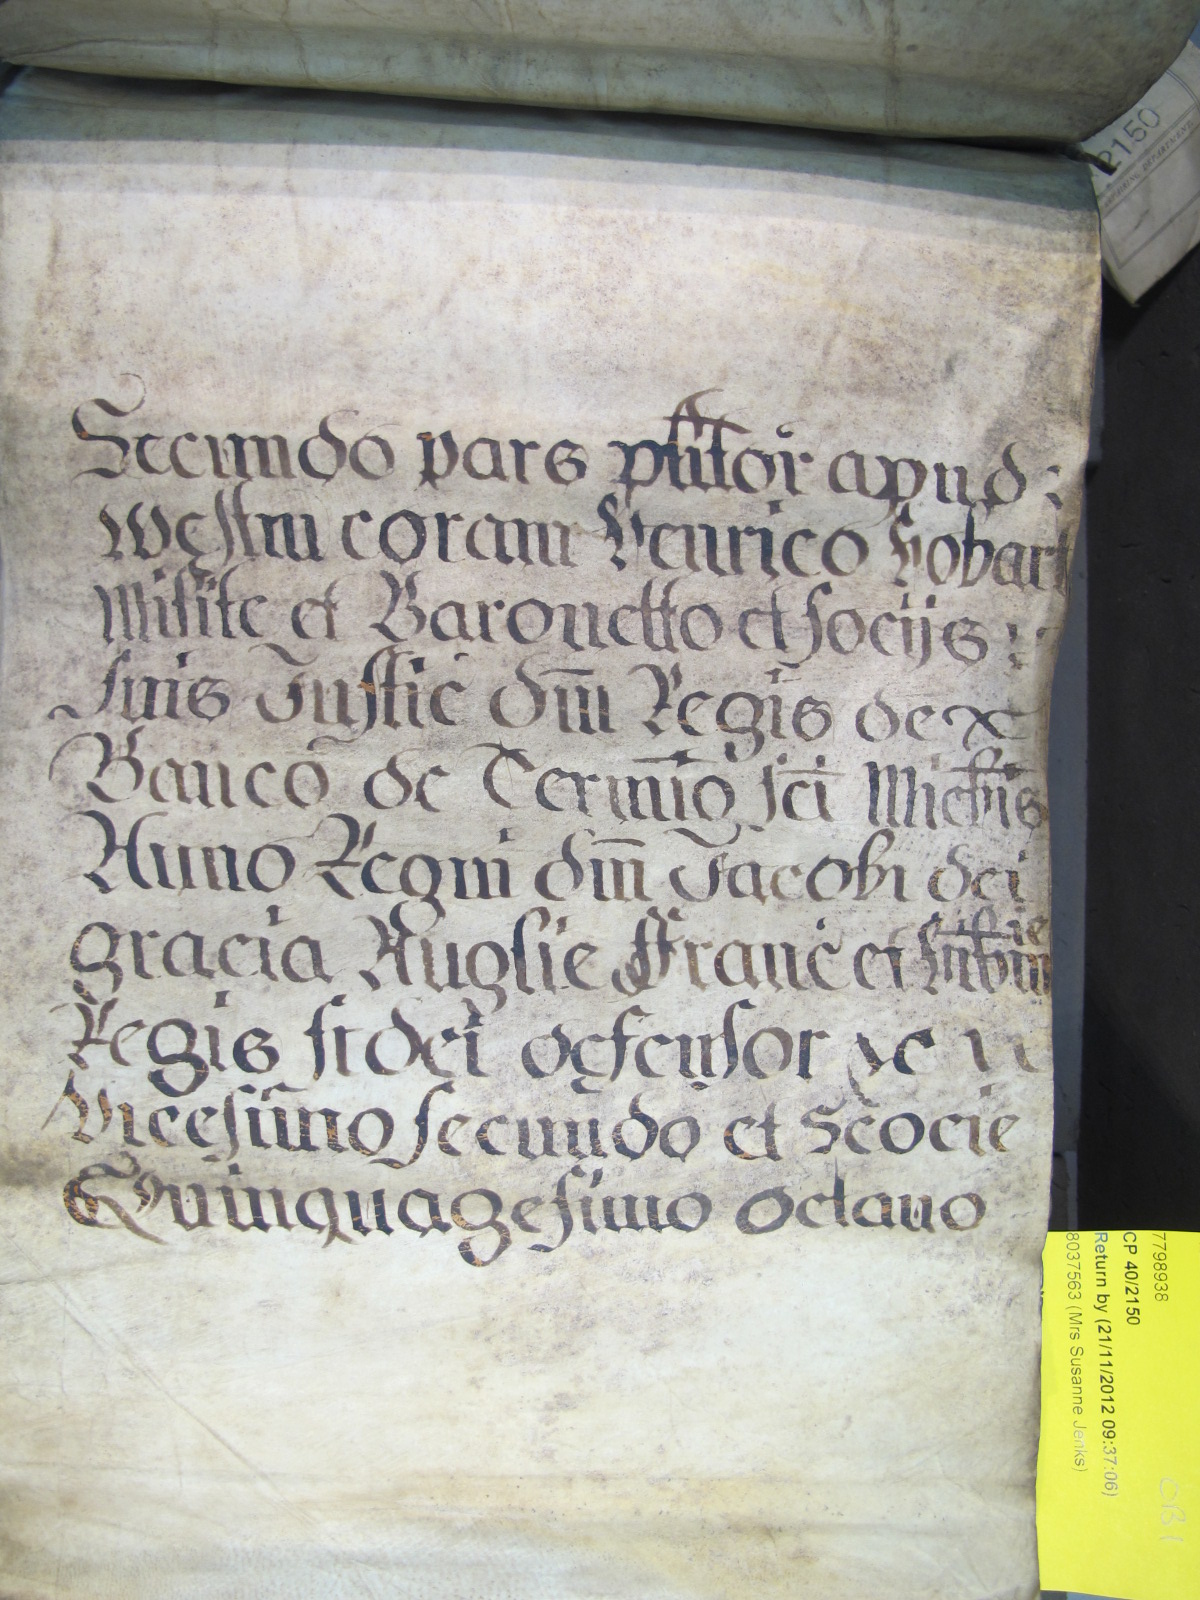 2150
Secundo pars płitor apud :
westm̃ coram Henrico Hobart
Milite et Baronetto et socijs
suis Justic dm̃i Regis de
Banco de Termino sc̃i Mich̃is
Anno Regni dm̃i Jacobi dei
gracia Anglie Ffranc et Hib̃nie
Regis fidei defensor &c
vicesimo secundo et Scocie
Quinquagesimo Octauo
7798938
CP 40/2150
Return by (21/11/2012 09:37:06)
8037563 (Mrs Susanne Jenks)